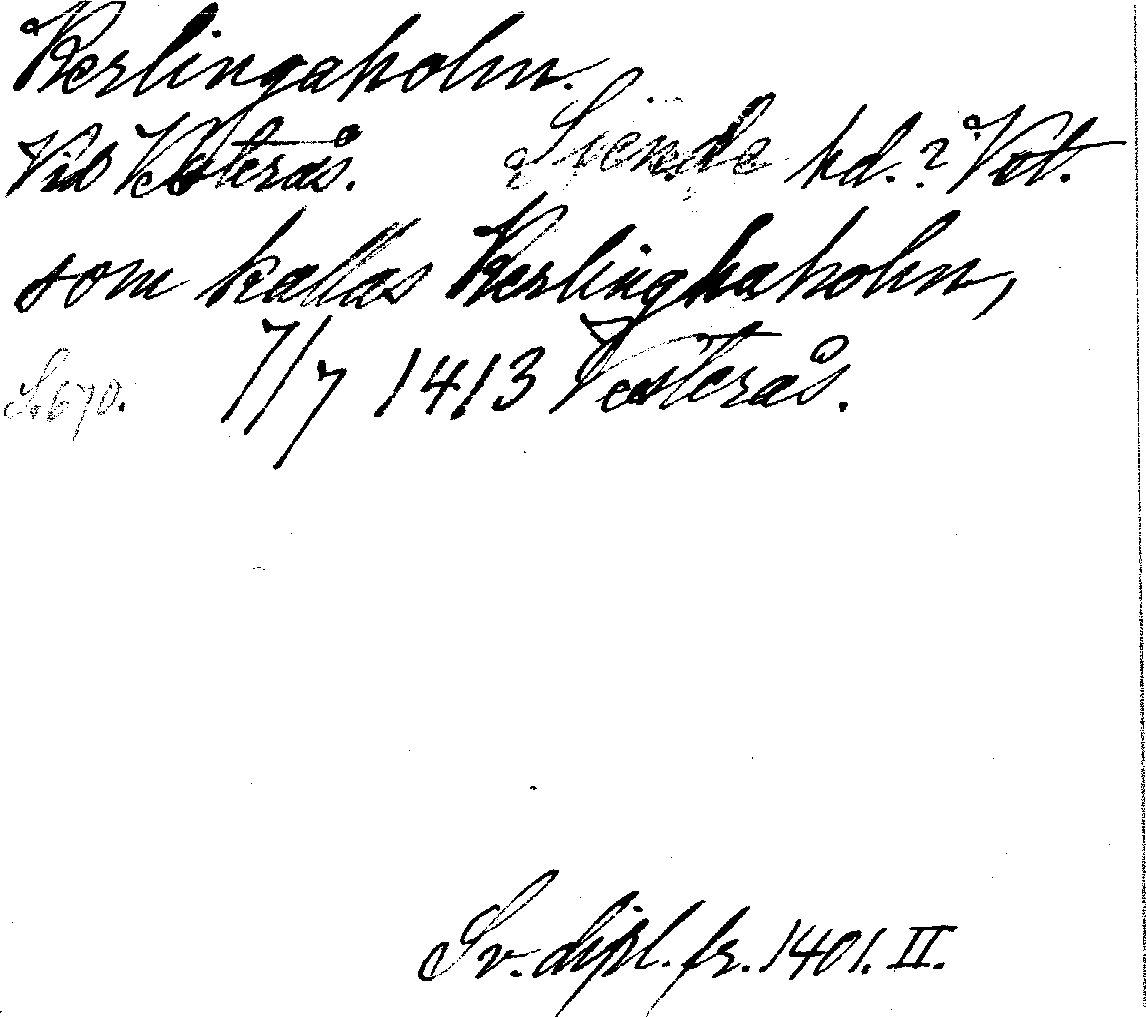 Kerlingaholm.
Vid Vesterås. Siende hd.? Vst.
som kallas Kerlinghaholm,
S. 670. 7/7 1413 Vesterås.
Sv. dipl. fr. 1401. II.